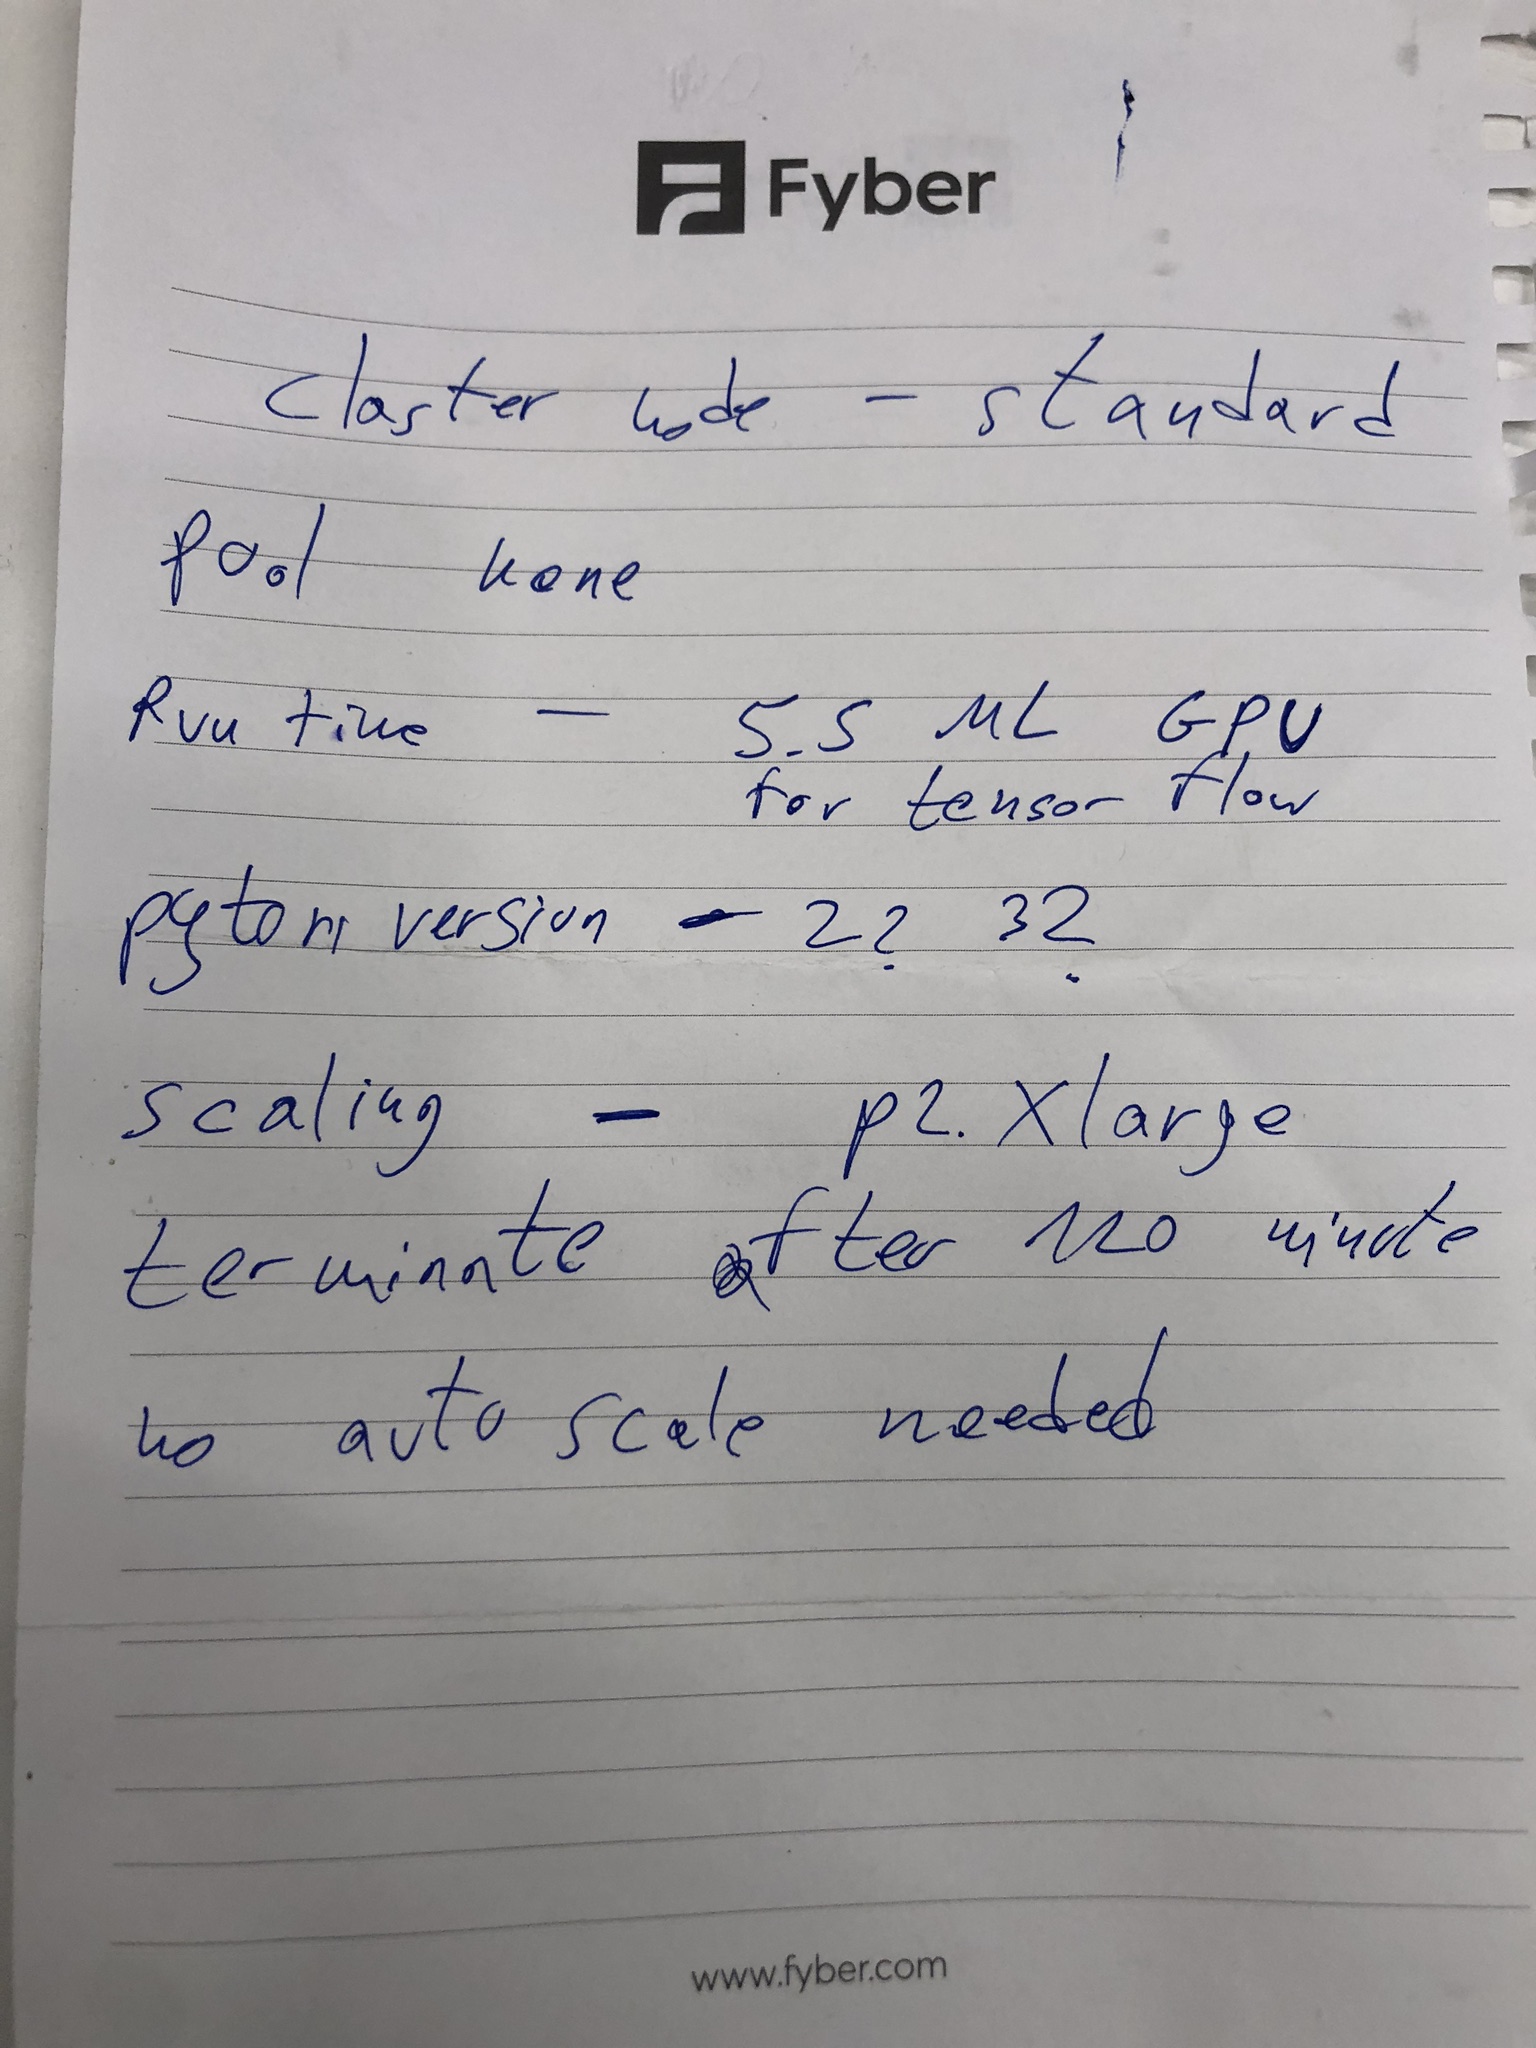 Fyber
claster node - standard
pool none
Run time - 5.5 ML GPU
for tensor flow
pyton version - 2? 3?
scaling - p2.Xlarge
terminate after 120 minute
no auto scale needed
www.fyber.com